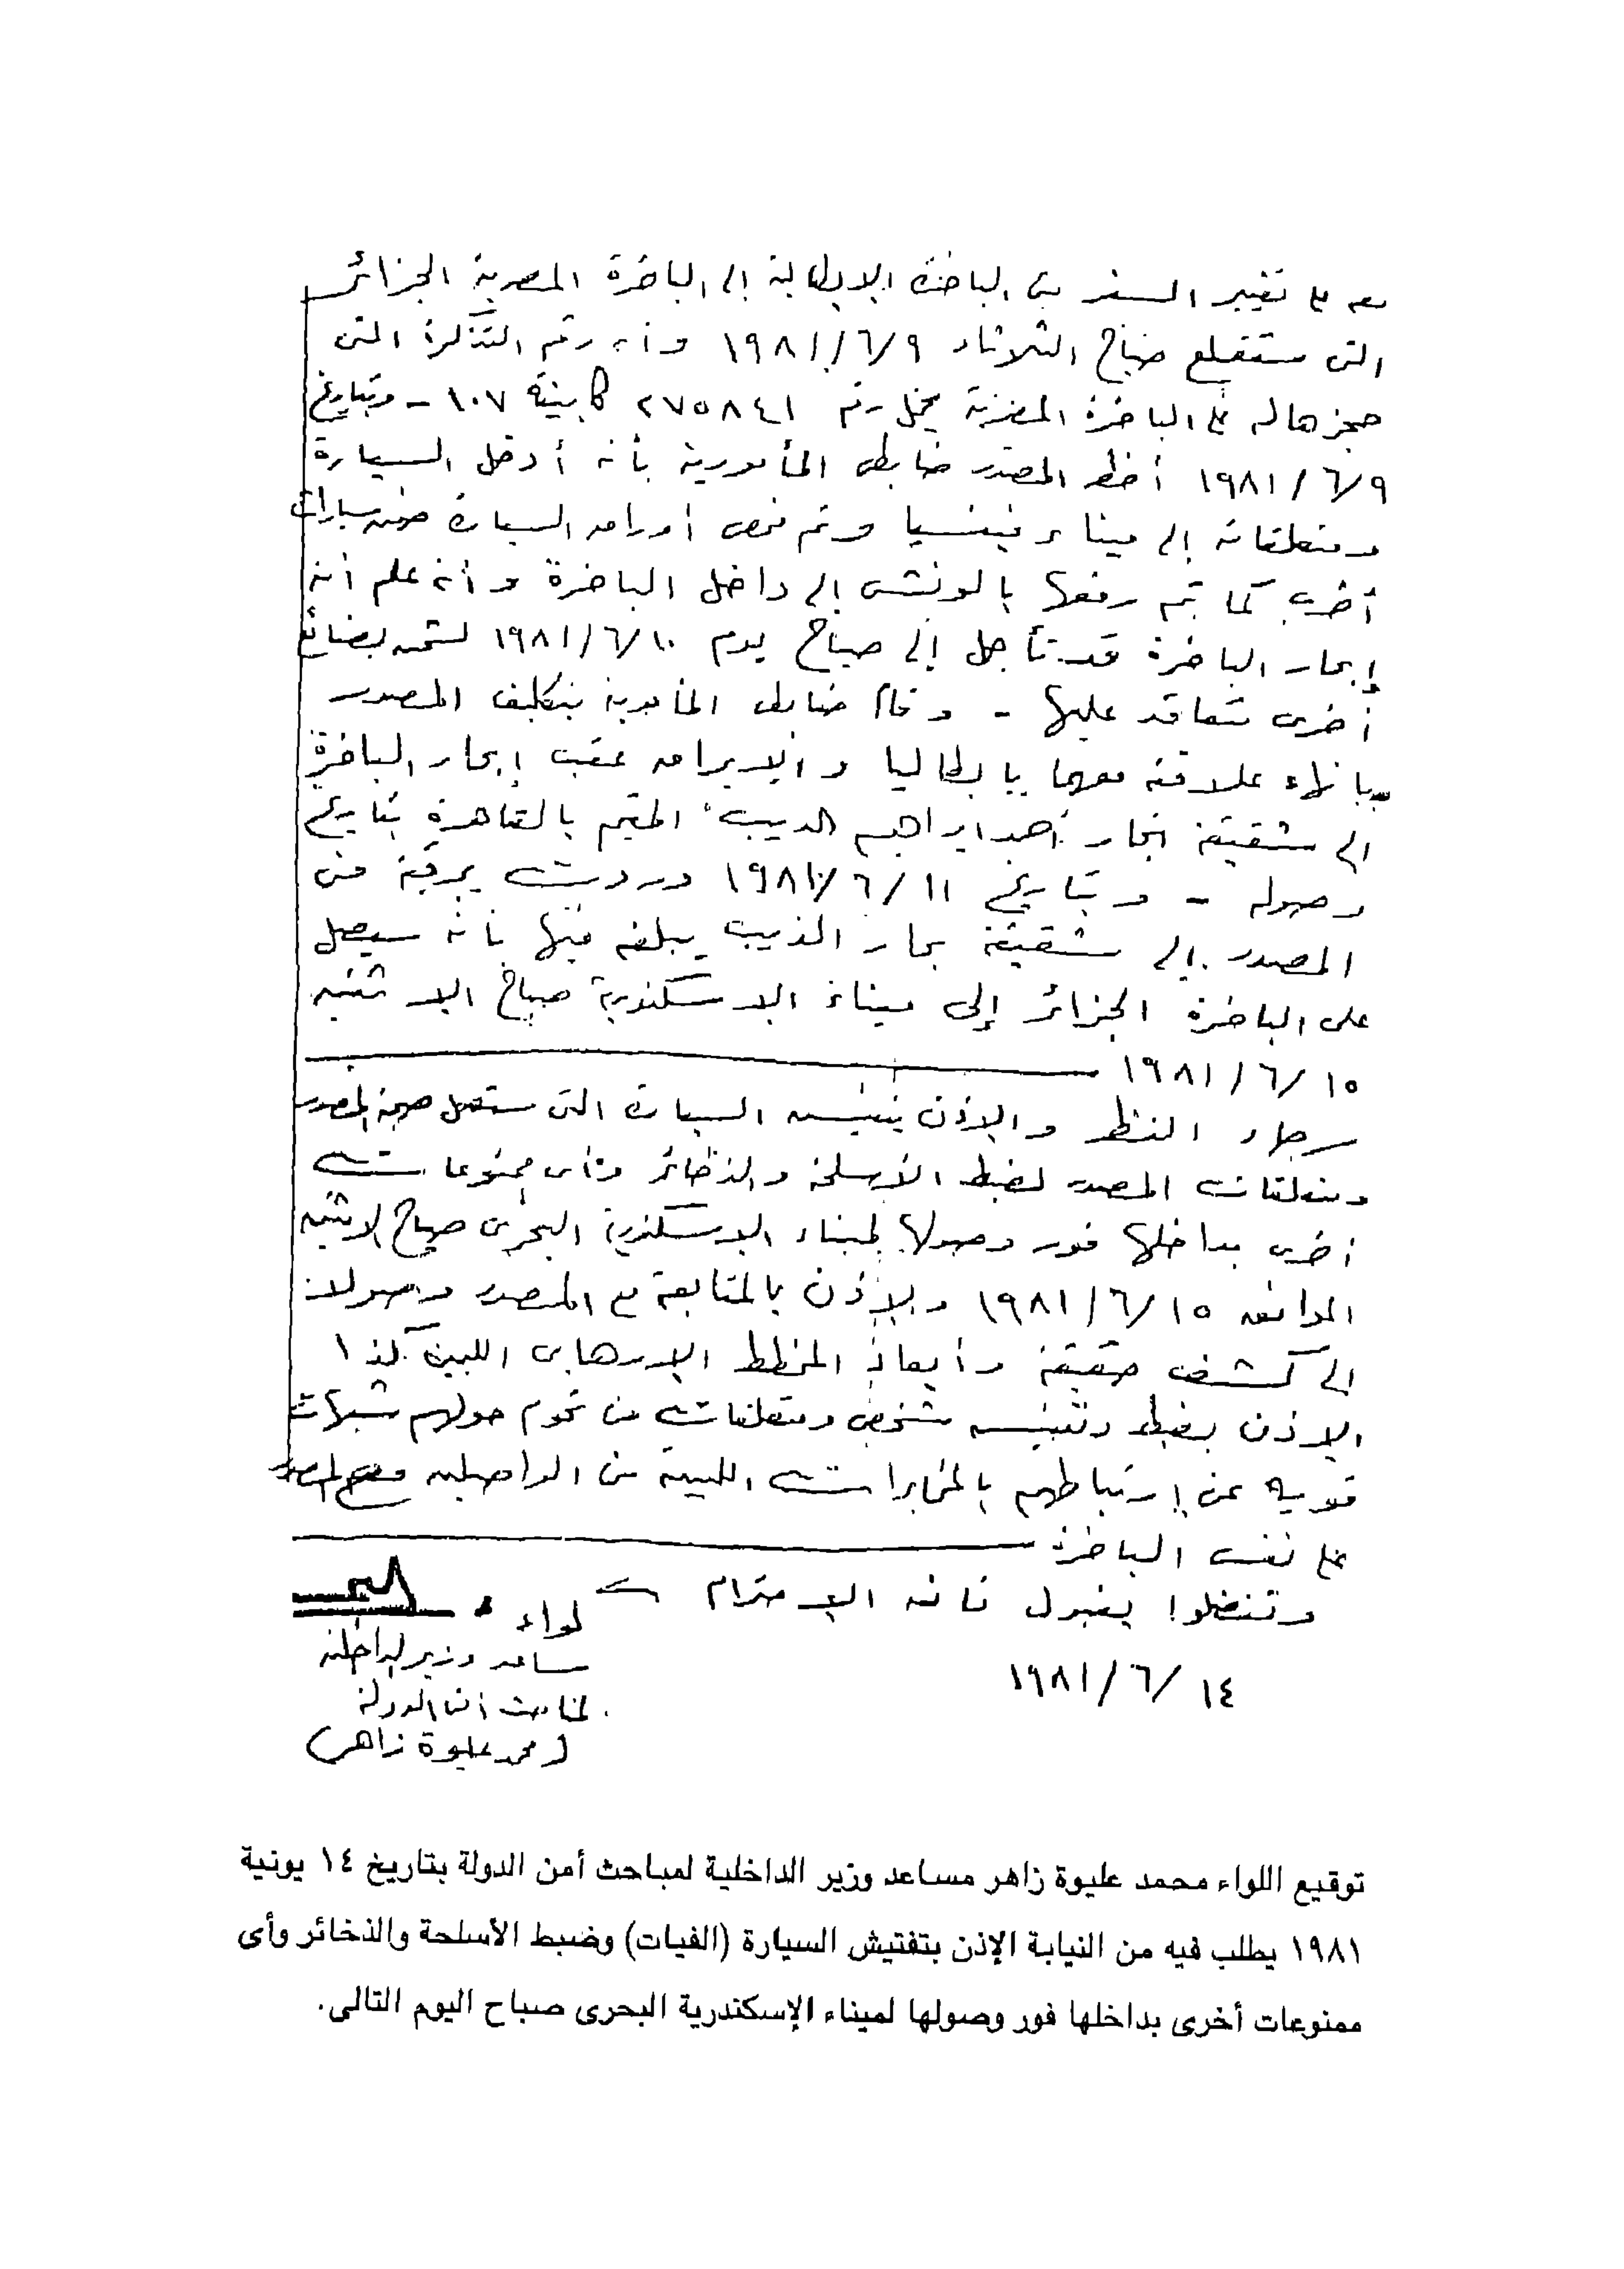 معه على تغيير السفر من الباخرة الإيطالية إلى الباخرة المصرية الجزائر
التى ستقلع صباح الثلاثاء ١٩٨١/٦/٩ وأن رقم التذكرة التى
حجزها له على الباخرة المصرية يحمل رقم ٢٧٥٨٤١ كابينة ١٠٧ - وبتاريخ
١٩٨١/٦/٩ أخطر المصدر ضابط المأمورية بأنه أدخل السيارة
ومتعلقاته إلى ميناء فينسيا وتم فحص أوراق السيارة ضمن سيارات
أخرى كما تم رفعها بالونش إلى داخل الباخرة وأنه علم أن
إبحار الباخرة قد تأجل إلى صباح يوم ١٩٨١/٦/١٠ لشحن بضائع
أخرى متعاقد عليها - وقام ضابط المأمورية بتكليف المصدر
بإنهاء علاقته معهما بإيطاليا والإبراق عقب إبحار الباخرة
إلى شقيقه أحمد ابراهيم الديب المقيم بالقاهرة بتاريخ
وصوله - وبتاريخ ١٩٨١/٦/١١ وردت برقية من
المصدر إلى شقيقه الديب يبلغه فيها بأنه سيصل
على الباخرة الجزائر إلى ميناء الاسكندرية صباح الاثنين
١٩٨١/٦/١٥
رجاء النظر والإذن بتفتيش السيارة التى ستصل صحبة المصدر
ومتعلقات المصدر لضبط الأسلحة والذخائر وأى ممنوعات
أخرى بداخلها فور وصولها لميناء الاسكندرية البحرى صباح الاثنين
الموافق ١٩٨١/٦/١٥ والإذن بالمتابعة مع المصدر وصولا
إلى كشف حقيقة وأبعاد المخطط الإرهابى الليبى كذا
الإذن بضبط وتفتيش شخص ومتعلقات من تحوم حولهم شبهات
قوية عن إرتباطهم بالمخابرات الليبية من الواصلين مع المصدر
على نفس الباخرة
وتفضلوا بقبول فائق الاحترام
لواء
مساعد وزير الداخلية
لمباحث أمن الدولة
(محمد عليوة زاهر)
١٩٨١/٦/١٤
توقيع اللواء محمد عليوة زاهر مساعد وزير الداخلية لمباحث أمن الدولة بتاريخ ١٤ يونية
١٩٨١ يطلب فيه من النيابة الإذن بتفتيش السيارة (الفيات) وضبط الأسلحة والذخائر وأى
ممنوعات أخرى بداخلها فور وصولها لميناء الإسكندرية البحرى صباح اليوم التالى.